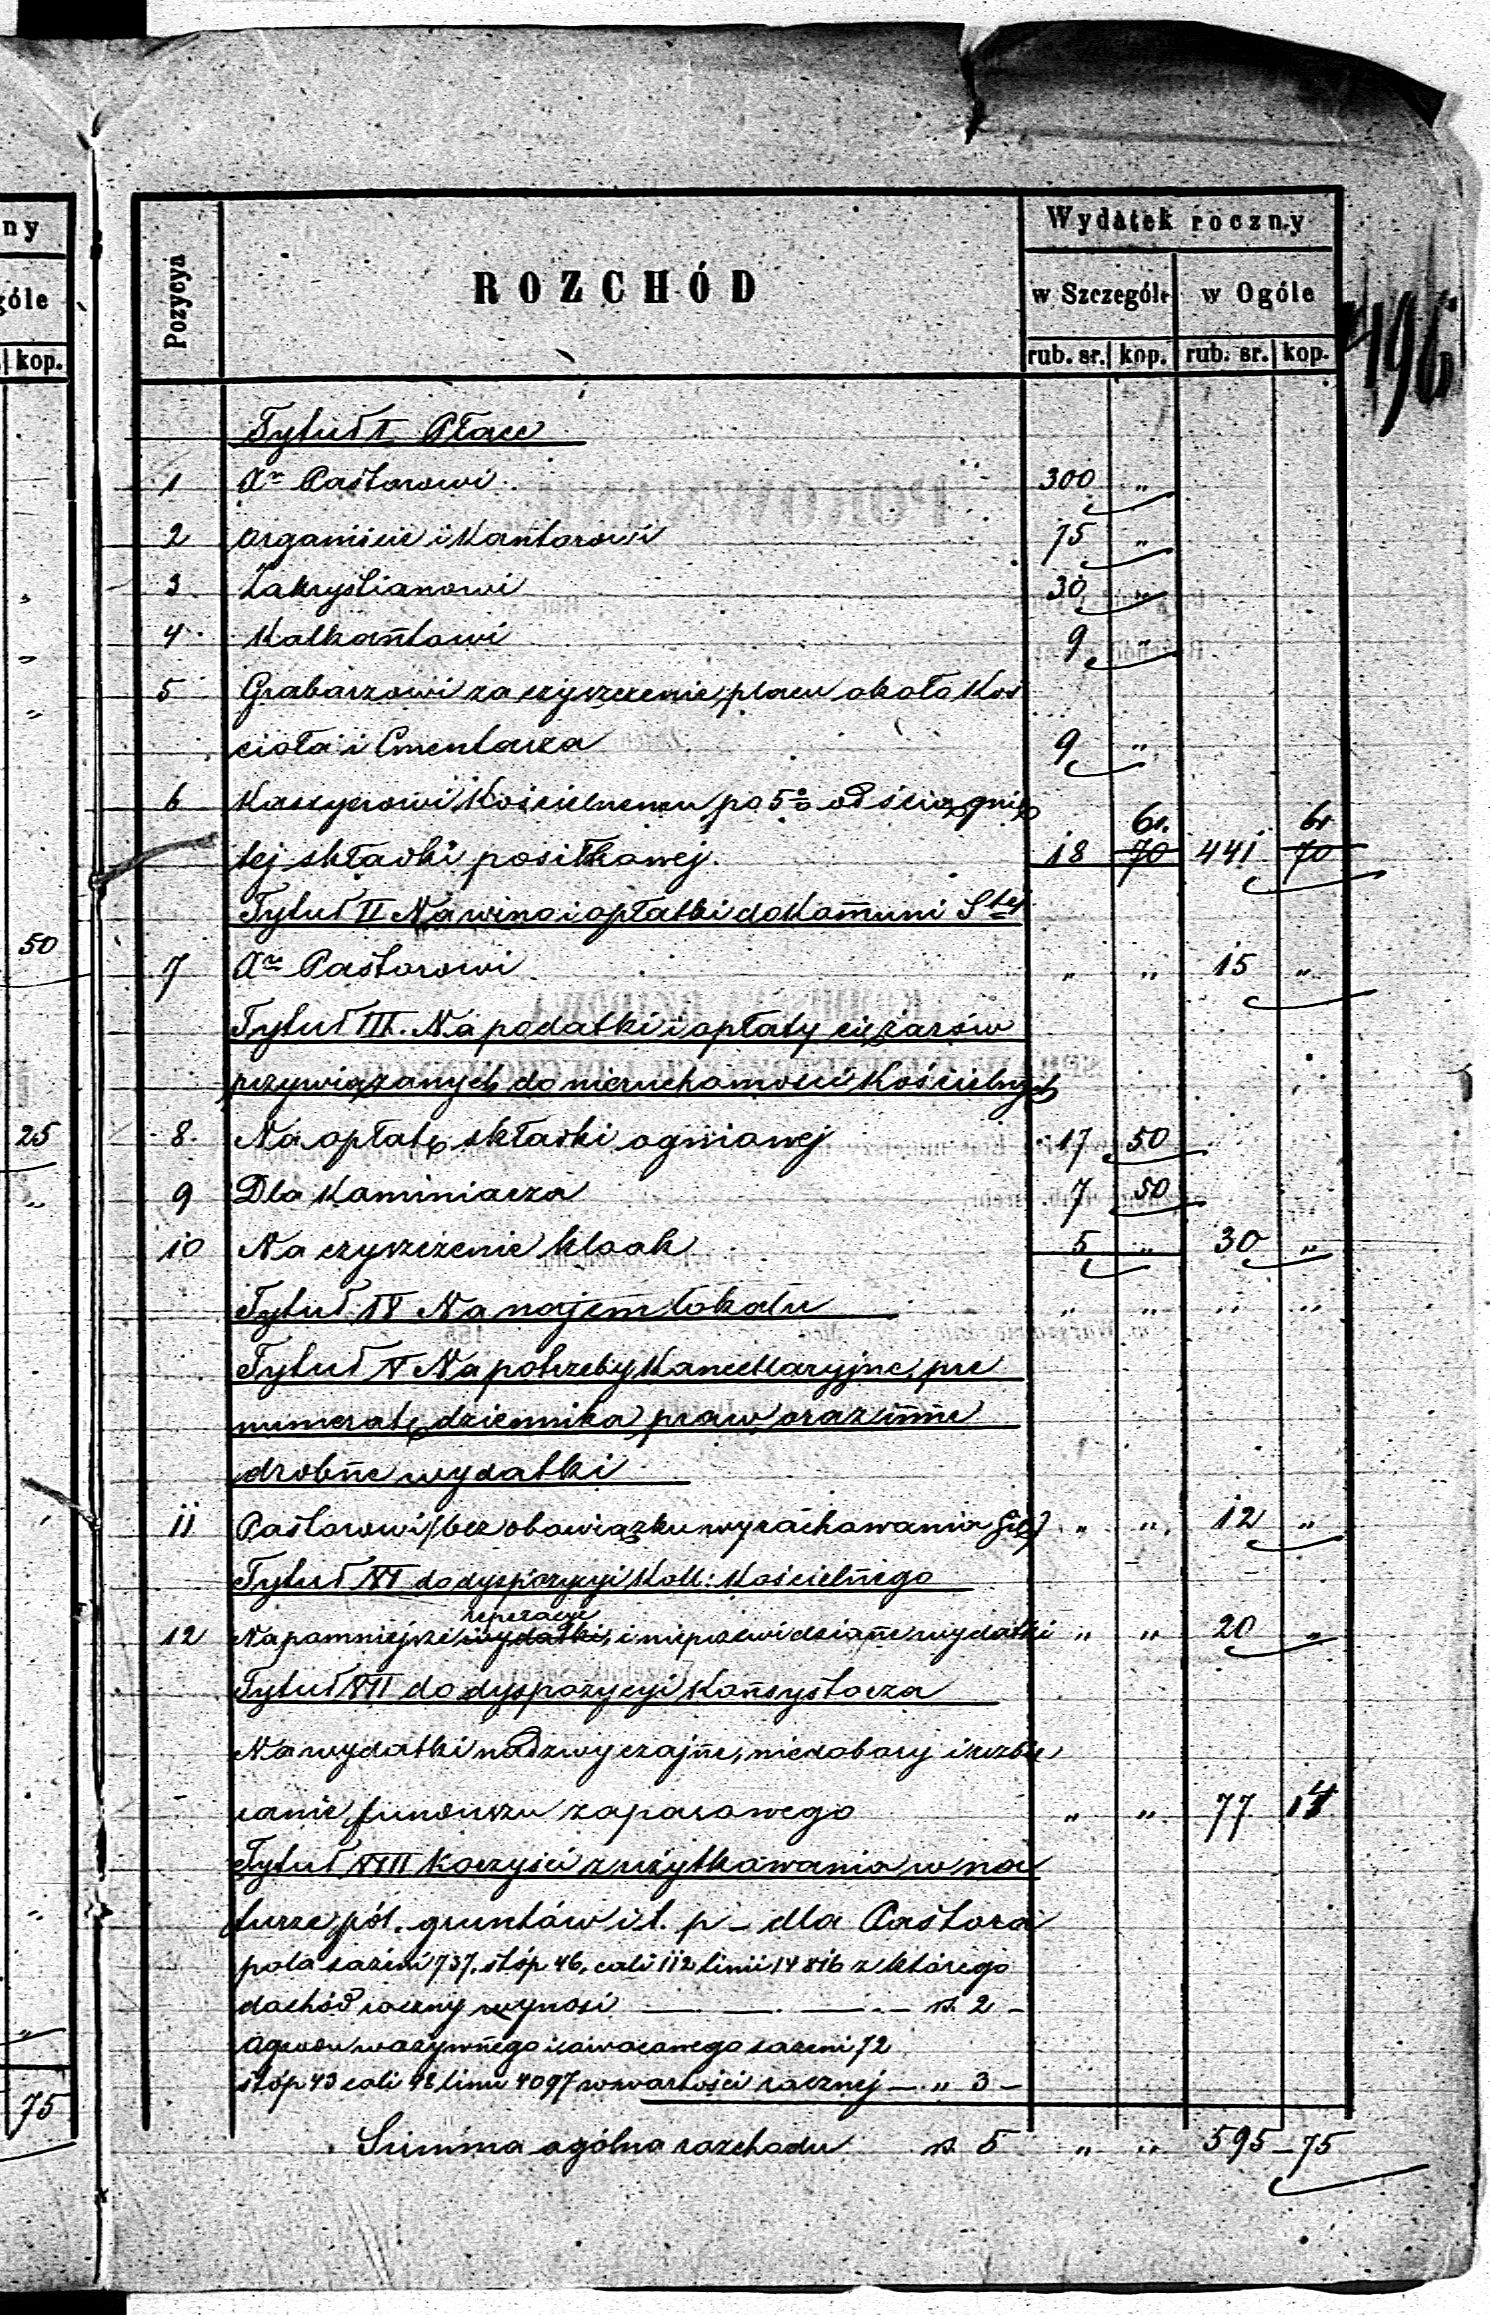 ny
góle
kop.
50
25
"
75
196
Pozycya
ROZCHÓD
Wydatek roczny
w Szczególe w Ogóle
rub. sr. kop. rub. sr. kop.
Tytuł I. Płace
1 Xu Pastorowi 300 "
2 Organiście i Kantorowi 75 "
3 Zakrystianowi 30 "
4 Kalkantowi 9 "
5 Grabarzowi za czyszczenie placu około Koś
cioła i Cmentarza 9 "
6 Kassyerowi Kościelnemu po 5% od ściągnię
61. 61
tej składki posiłkowej. 18 70 441 70
Tytuł II Na wino i opłatki do Kommuni Stej
7 Xu Pastorowi " " 15 "
Tytuł III. Na podatki i opłaty ciężarów
przywiązanych do nieruchomości Kościelnych
8 Na opłatę składki ogniowej 17 50
9 Dla Kominiarza 7 50
10 Na czyszczenie kloak 5 " 30 "
Tytuł IV Na najem lokalu " " " "
Tytuł V Na potrzeby Kancellaryjne, pre
numeratę dziennika praw, oraz inne
drobne wydatki
11 Pastorowi (bez obowiązku wyrachowania się) " " 12 "
Tytuł VI do dyspozycyi Koll: Kościelnego
reperacye
12 Na pomniejsze wydatki, i nieprzewidziane wydatki " " 20 "
Tytuł VII do dyspozycyi Konsystorza
Na wydatki nadzwyczajne, niedobory i uzbie
ranie funduszu zapasowego " " 77 14
Tytuł VIII Korzyści z użytkowania w na
turze pól, gruntów i t. p – dla Pastora
pola sążni 737. stóp 46, cali 112 linii 14816 z którego
dochód roczny wynosi — — — rs. 2 –
Ogrodu warzywnego i owocowego sążni 72
stóp 43 cali 48 linii 4097 w wartości rocznej — " 3 –
Summa ogólna rozchodu rs. 5 " " 595 – 75